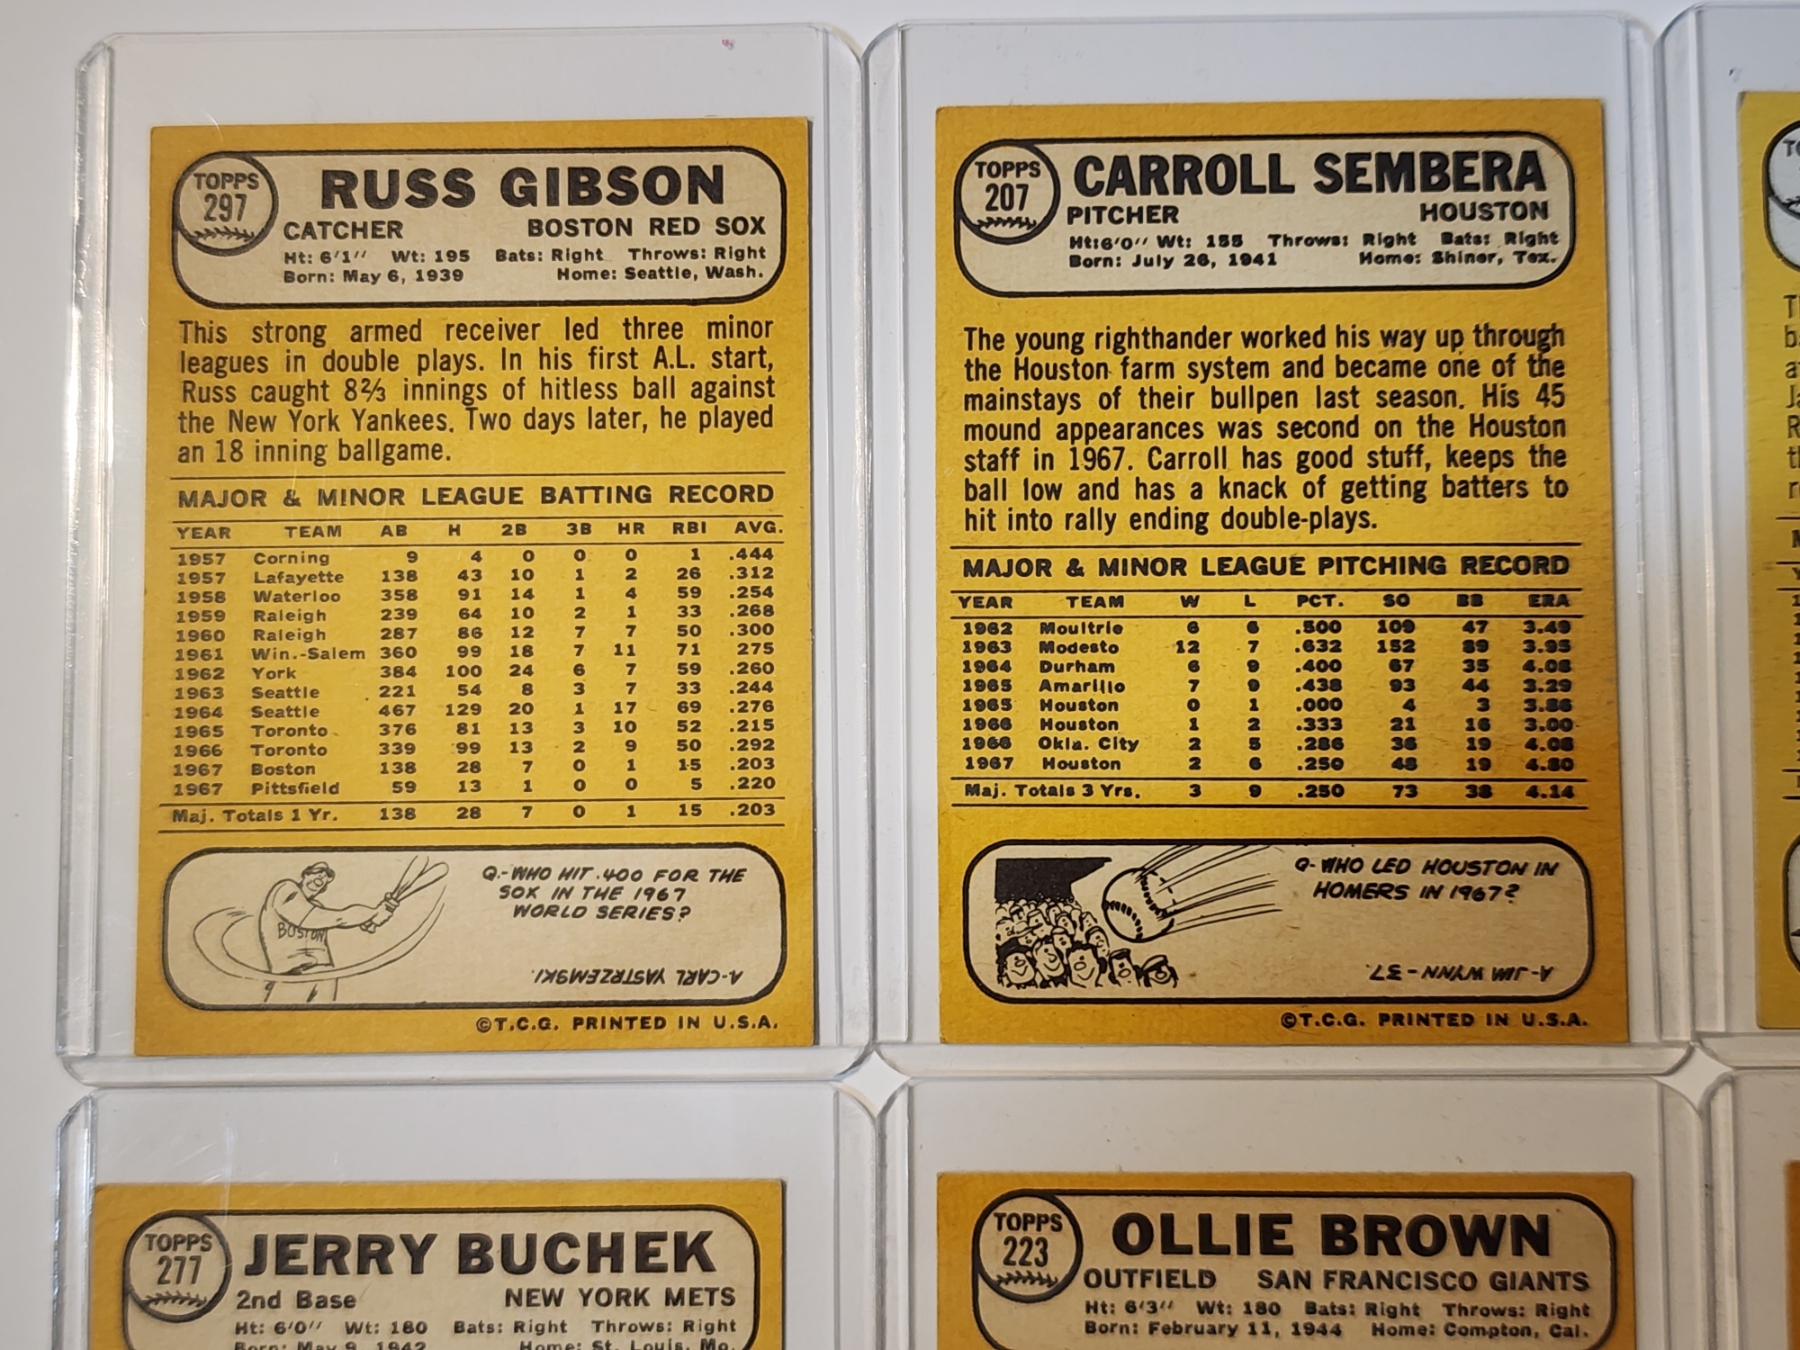 TOPPS
297
RUSS GIBSON
CATCHER BOSTON RED SOX
Ht: 6'1" Wt: 195 Bats: Right Throws: Right
Born: May 6, 1939 Home: Seattle, Wash.
This strong armed receiver led three minor
leagues in double plays. In his first A.L. start,
Russ caught 8⅔ innings of hitless ball against
the New York Yankees. Two days later, he played
an 18 inning ballgame.
MAJOR & MINOR LEAGUE BATTING RECORD
YEAR TEAM AB H 2B 3B HR RBI AVG.
1957 Corning 9 4 0 0 0 1 .444
1957 Lafayette 138 43 10 1 2 26 .312
1958 Waterloo 358 91 14 1 4 59 .254
1959 Raleigh 239 64 10 2 1 33 .268
1960 Raleigh 287 86 12 7 7 50 .300
1961 Win.-Salem 360 99 18 7 11 71 275
1962 York 384 100 24 6 7 59 .260
1963 Seattle 221 54 8 3 7 33 .244
1964 Seattle 467 129 20 1 17 69 .276
1965 Toronto 376 81 13 3 10 52 .215
1966 Toronto 339 99 13 2 9 50 .292
1967 Boston 138 28 7 0 1 15 .203
1967 Pittsfield 59 13 1 0 0 5 .220
Maj. Totals 1 Yr. 138 28 7 0 1 15 .203
BOSTON
Q.-WHO HIT .400 FOR THE
SOX IN THE 1967
WORLD SERIES?
A-CARL YASTRZEMSKI.
©T.C.G. PRINTED IN U.S.A.
TOPPS
207
CARROLL SEMBERA
PITCHER HOUSTON
Ht:6'0" Wt: 155 Throws: Right Bats: Right
Born: July 26, 1941 Home: Shiner, Tex.
The young righthander worked his way up through
the Houston farm system and became one of the
mainstays of their bullpen last season. His 45
mound appearances was second on the Houston
staff in 1967. Carroll has good stuff, keeps the
ball low and has a knack of getting batters to
hit into rally ending double-plays.
MAJOR & MINOR LEAGUE PITCHING RECORD
YEAR TEAM W L PCT. SO BB ERA
1962 Moultrie 6 6 .500 109 47 3.49
1963 Modesto 12 7 .632 152 89 3.95
1964 Durham 6 9 .400 67 35 4.08
1965 Amarillo 7 9 .438 93 44 3.29
1965 Houston 0 1 .000 4 3 3.86
1966 Houston 1 2 .333 21 16 3.00
1966 Okla. City 2 5 .286 36 19 4.08
1967 Houston 2 6 .250 48 19 4.80
Maj. Totals 3 Yrs. 3 9 .250 73 38 4.14
Q-WHO LED HOUSTON IN
HOMERS IN 1967?
A-JIM WYNN-37.
©T.C.G. PRINTED IN U.S.A.
TOPPS
277
JERRY BUCHEK
2nd Base NEW YORK METS
Ht: 6'0" Wt: 180 Bats: Right Throws: Right
Born: May 9, 1942 Home: St. Louis, Mo.
TOPPS
223
OLLIE BROWN
OUTFIELD SAN FRANCISCO GIANTS
Ht: 6'3" Wt: 180 Bats: Right Throws: Right
Born: February 11, 1944 Home: Compton, Cal.